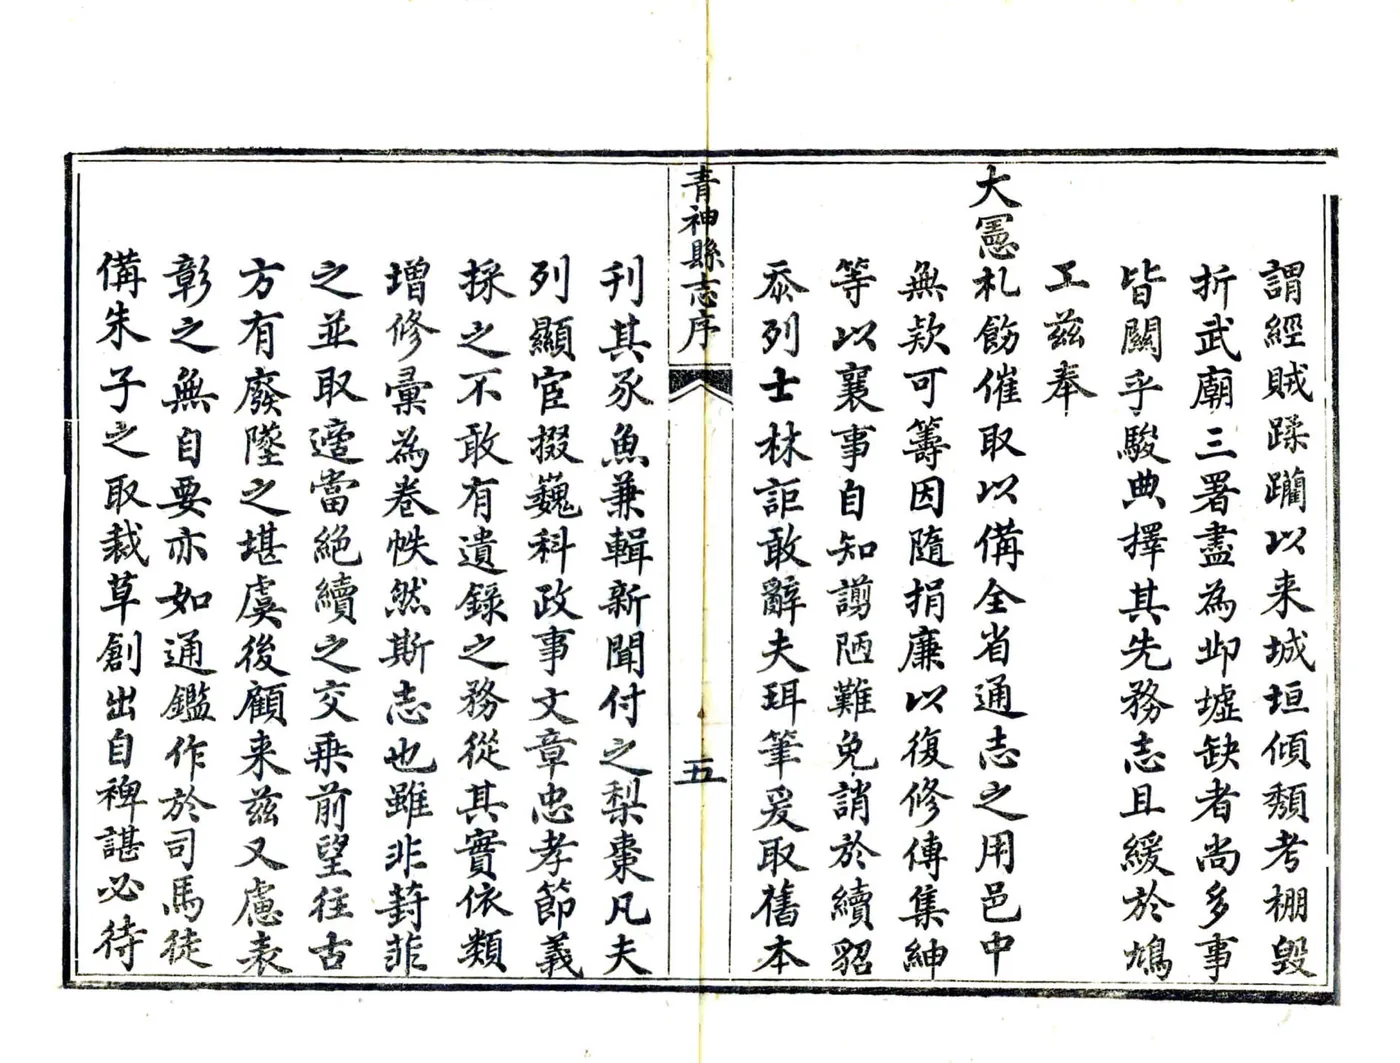 謂經賊蹂躪以来城垣傾頽考棚毁
折武廟三署盡為邱墟缺者尚多事
皆關乎駿典擇其先務志且緩於鳩
工兹奉
大憲札飭催取以備全省通志之用邑中
無欵可籌因隨捐廉以復修傳集紳
等以襄事自知譾陋難免誚於續貂
忝列士林詎敢辭夫珥筆爰取舊本
青神縣志序
五
刋其豕魚兼輯新聞付之梨棗凡夫
列顯宦掇巍科政事文章忠孝節義
採之不敢有遺錄之務從其實依類
增修彙為卷帙然斯志也雖非葑菲
之並取適當絶續之交乗前望往古
方有廢墜之堪虞後顧来兹又慮表
彰之無自要亦如通鑑作於司馬徒
備朱子之取裁草創出自裨諶必待